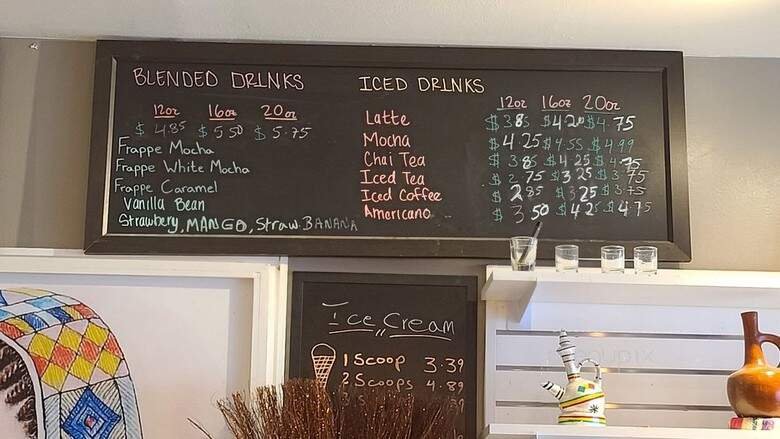 BLENDED DRINKS
12oz 16oz 20oz
$ 4.85 $ 5.50 $ 5.75
Frappe Mocha
Frappe White Mocha
Frappe Caramel
Vanilla Bean
Strawbery, MANGO, Straw.BANANA
ICED DRINKS
12oz 16oz 20oz
Latte $3.85 $4.20 $4.75
Mocha $4.25 $4.55 $4.99
Chai Tea $3.85 $4.25 $4.75
Iced Tea $2.75 $3.25 $3.75
Iced Coffee $2.85 $3.25 $3.75
Americano $3.50 $4.25 $4.75
Ice Cream
1 Scoop 3.39
2 Scoops 4.89